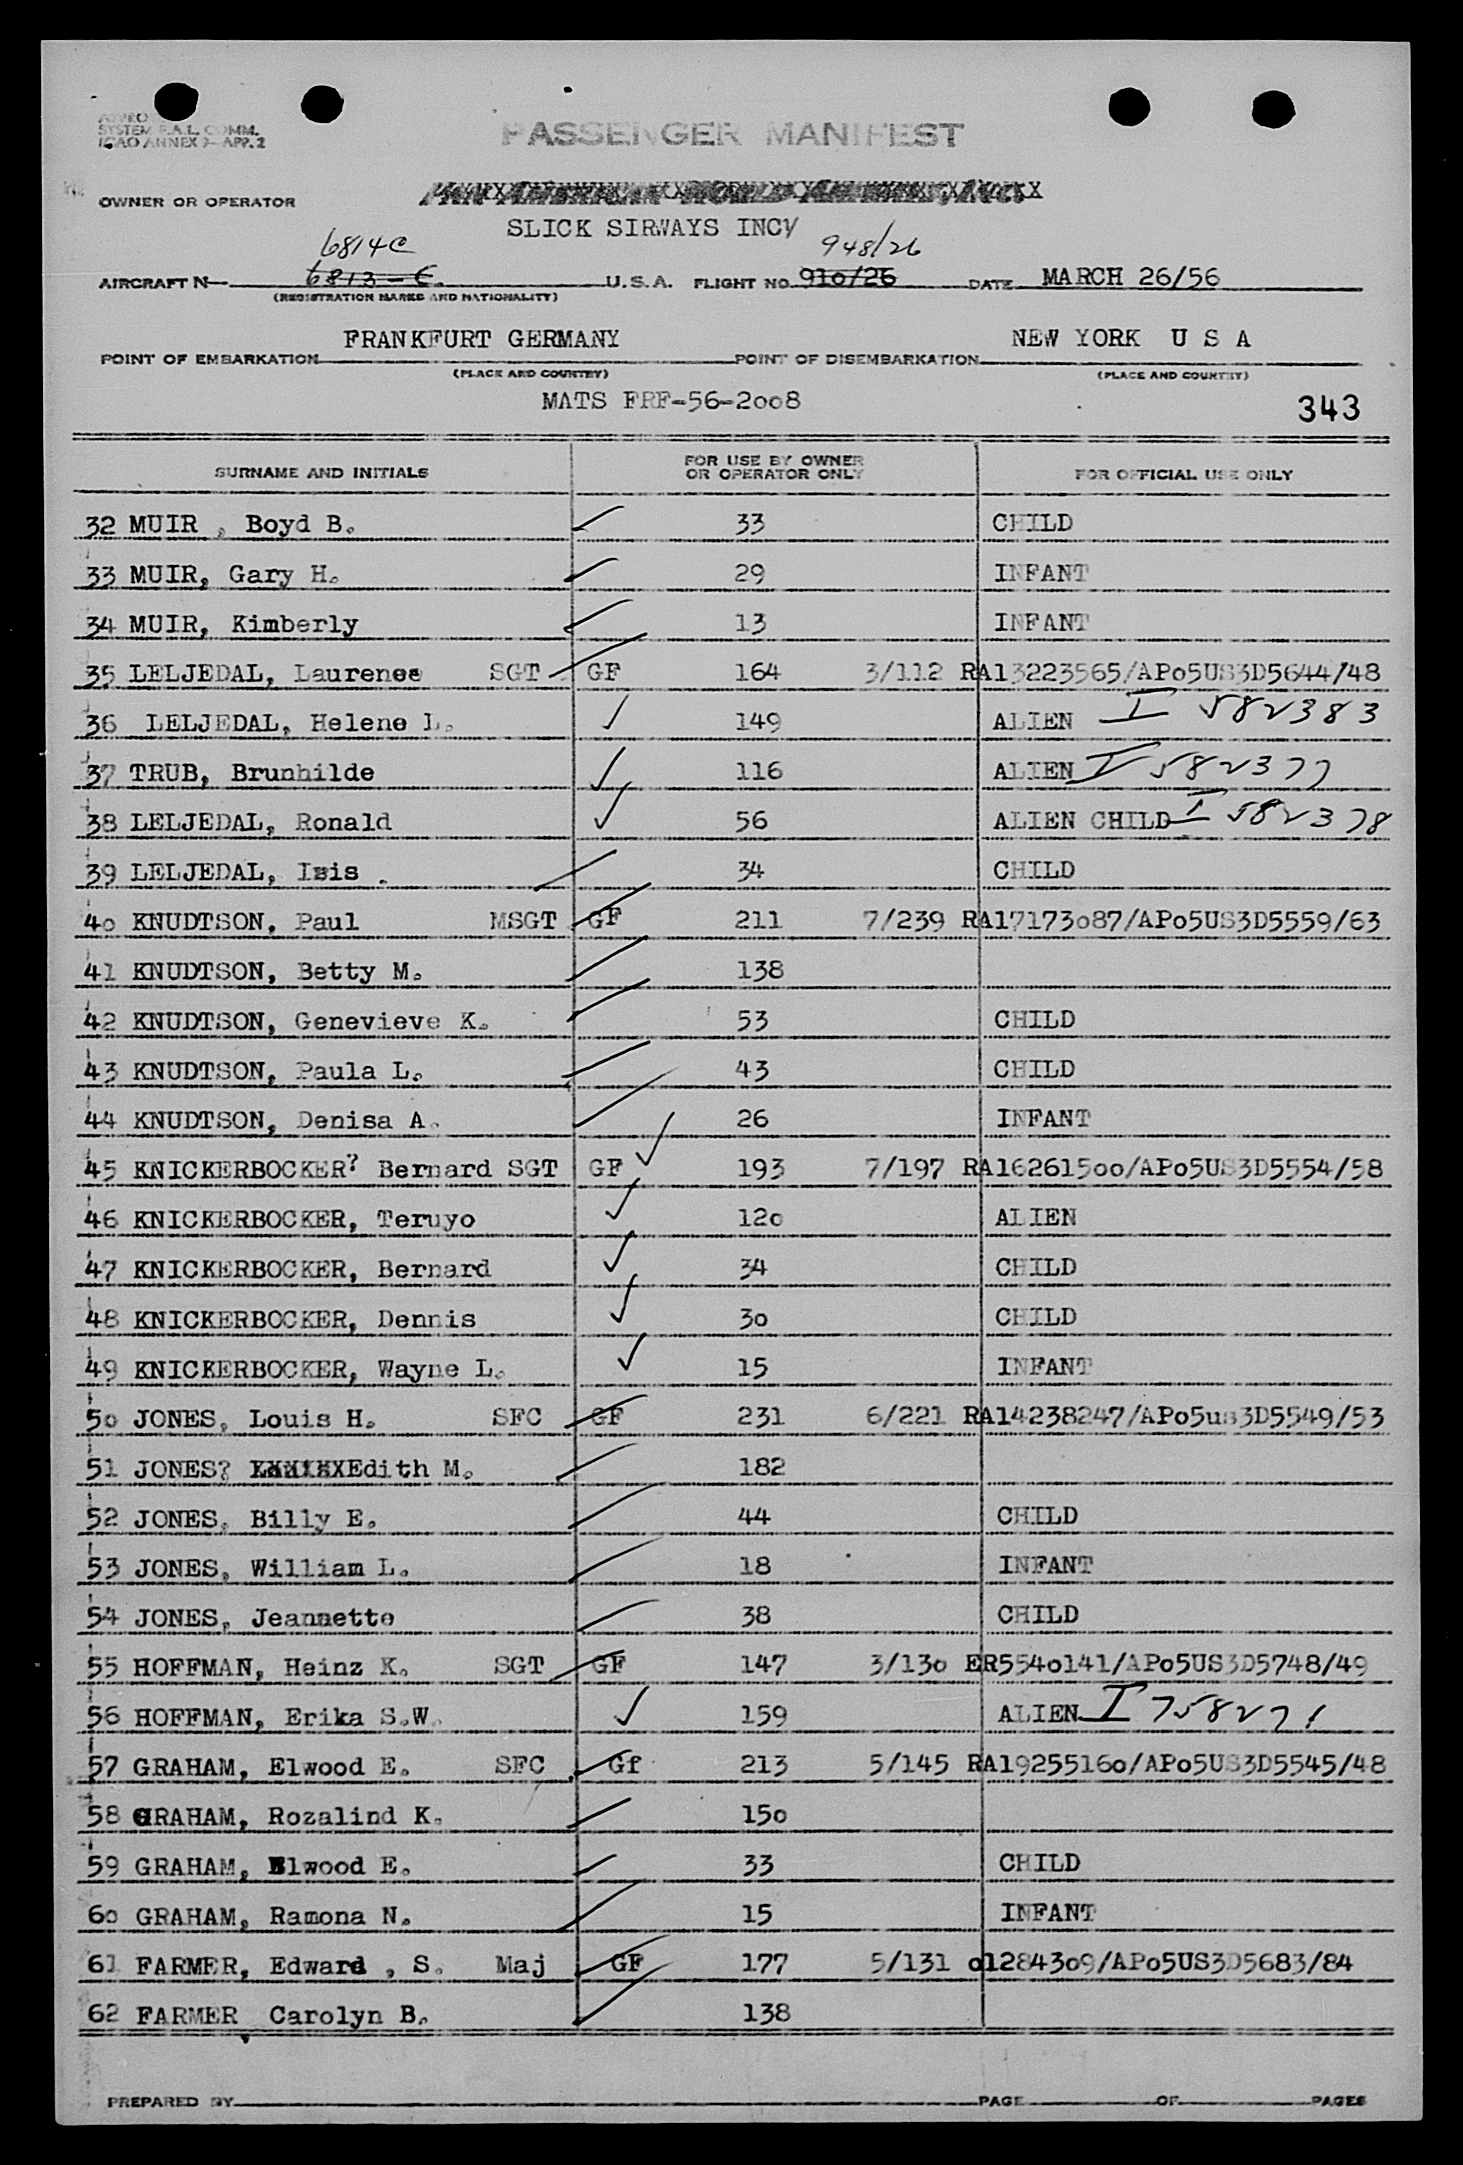 SYSTEM F.A.L. COMM.
ICAO ANNEX 9—APP. 2
PASSENGER MANIFEST
OWNER OR OPERATOR
SLICK SIRWAYS INC
6814C 948/26
AIRCRAFT N 6813-C U.S.A. FLIGHT NO. 910/26 DATE MARCH 26/56
(REGISTRATION MARKS AND NATIONALITY)
FRANKFURT GERMANY NEW YORK U S A
POINT OF EMBARKATION POINT OF DISEMBARKATION
(PLACE AND COUNTRY) (PLACE AND COUNTRY)
MATS FRF-56-2oo8 343
SURNAME AND INITIALS FOR USE BY OWNER OR OPERATOR ONLY FOR OFFICIAL USE ONLY
32 MUIR , Boyd B. 33 CHILD
33 MUIR, Gary H. 29 INFANT
34 MUIR, Kimberly 13 INFANT
35 LELJEDAL, Laurence SGT GF 164 3/112 RA13223565/APo5US3D5644/48
36 LELJEDAL, Helene L. 149 ALIEN I 582383
37 TRUB, Brunhilde 116 ALIEN I 582377
38 LELJEDAL, Ronald 56 ALIEN CHILD I 582378
39 LELJEDAL, Isis . 34 CHILD
4o KNUDTSON, Paul MSGT GF 211 7/239 RA17173o87/APo5US3D5559/63
41 KNUDTSON, Betty M. 138
42 KNUDTSON, Genevieve K. 53 CHILD
43 KNUDTSON, Paula L. 43 CHILD
44 KNUDTSON, Denisa A. 26 INFANT
45 KNICKERBOCKER? Bernard SGT GF 193 7/197 RA162615oo/APo5US3D5554/58
46 KNICKERBOCKER, Teruyo 12o ALIEN
47 KNICKERBOCKER, Bernard 34 CHILD
48 KNICKERBOCKER, Dennis 3o CHILD
49 KNICKERBOCKER, Wayne L. 15 INFANT
5o JONES, Louis H. SFC GF 231 6/221 RA14238247/APo5us3D5549/53
51 JONES? Edith M. 182
52 JONES, Billy E. 44 CHILD
53 JONES, William L. 18 INFANT
54 JONES, Jeannette 38 CHILD
55 HOFFMAN, Heinz K. SGT GF 147 3/13o ER554o141/APo5US3D5748/49
56 HOFFMAN, Erika S.W. 159 ALIEN I 758271
57 GRAHAM, Elwood E. SFC Gf 213 5/145 RA1925516o/APo5US3D5545/48
58 GRAHAM, Rozalind K. 15o
59 GRAHAM, Elwood E. 33 CHILD
6o GRAHAM, Ramona N. 15 INFANT
61 FARMER, Edward , S. Maj GF 177 5/131 o12843o9/APo5US3D5683/84
62 FARMER Carolyn B. 138
PREPARED BY PAGE OF PAGES